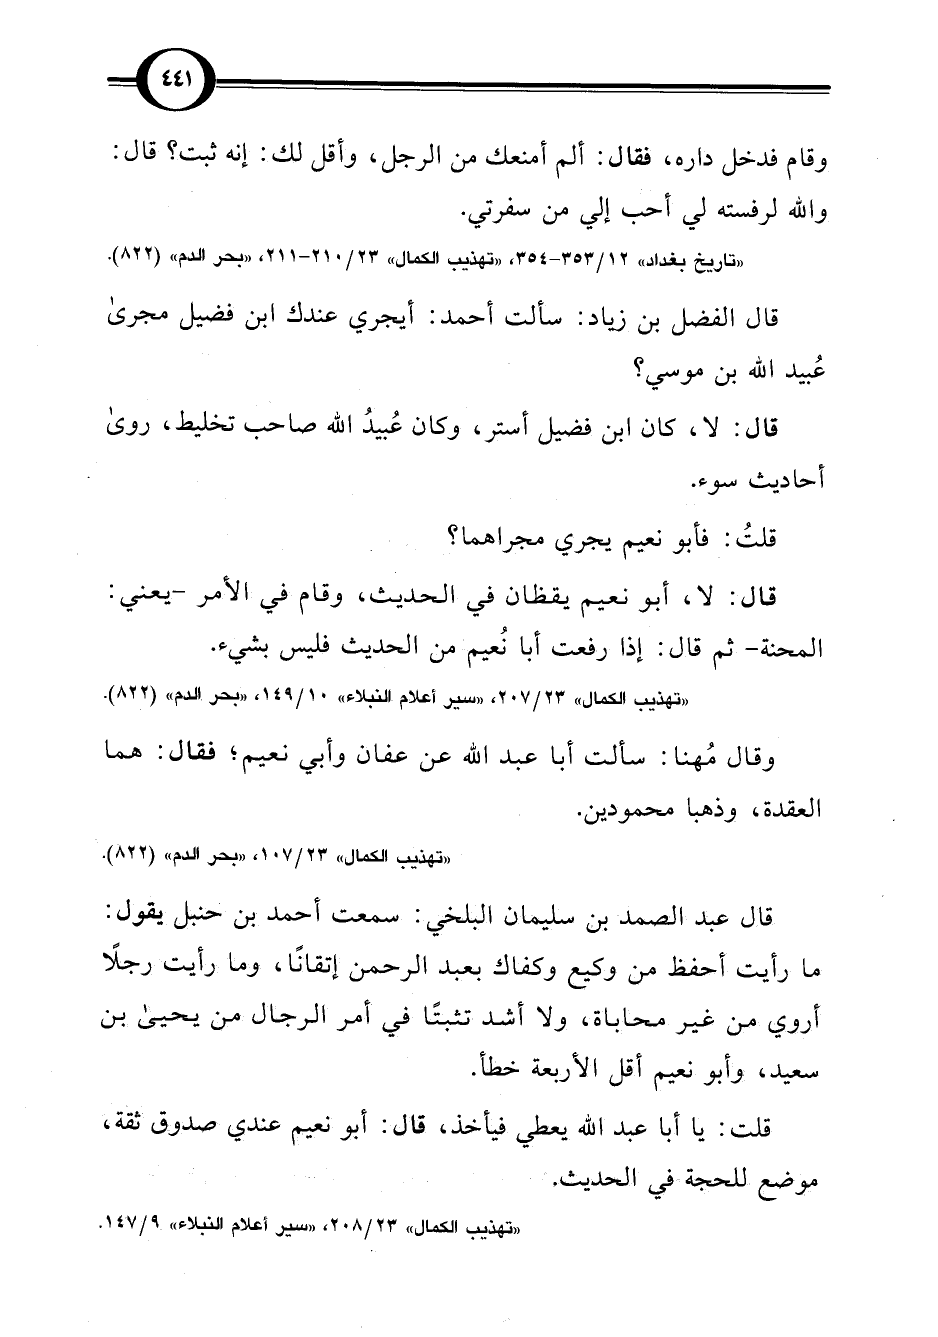 ٤٤١
وقام فدخل داره، فقال: ألم أمنعك من الرجل، وأقل لك: إنه ثبت؟ قال:
والله لرفسته لي أحب إلي من سفرتي.
«تاريخ بغداد» ١٢/ ٣٥٣-٣٥٤، «تهذيب الكمال» ٢٣/ ٢١٠-٢١١، «بحر الدم» (٨٢٢).
قال الفضل بن زياد: سألت أحمد: أيجري عندك ابن فضيل مجرىٰ
عُبيد الله بن موسي؟
قال: لا، كان ابن فضيل أستر، وكان عُبيدُ الله صاحب تخليط، روىٰ
أحاديث سوء.
قلتُ: فأبو نعيم يجري مجراهما؟
قال: لا، أبو نعيم يقظان في الحديث، وقام في الأمر -يعني:
المحنة- ثم قال: إذا رفعت أبا نُعيم من الحديث فليس بشيء.
«تهذيب الكمال» ٢٣/ ٢٠٧، «سير أعلام النبلاء» ١٠/ ١٤٩، «بحر الدم» (٨٢٢).
وقال مُهنا: سألت أبا عبد الله عن عفان وأبي نعيم؛ فقال: هما
العقدة، وذهبا محمودين.
«تهذيب الكمال» ٢٣/ ١٠٧، «بحر الدم» (٨٢٢).
قال عبد الصمد بن سليمان البلخي: سمعت أحمد بن حنبل يقول:
ما رأيت أحفظ من وكيع وكفاك بعبد الرحمن إتقانًا، وما رأيت رجلًا
أروي من غير محاباة، ولا أشد تثبتًا في أمر الرجال من يحيىٰ بن
سعيد، وأبو نعيم أقل الأربعة خطأ.
قلت: يا أبا عبد الله يعطي فيأخذ، قال: أبو نعيم عندي صدوق ثقة،
موضع للحجة في الحديث.
«تهذيب الكمال» ٢٣/ ٢٠٨، «سير أعلام النبلاء» ٩/ ١٤٧.